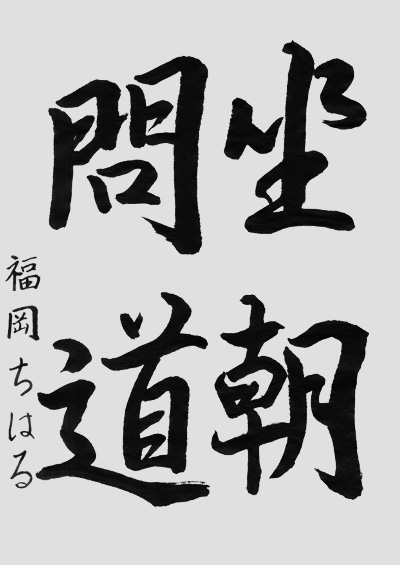 坐朝
問道
福岡ちはる